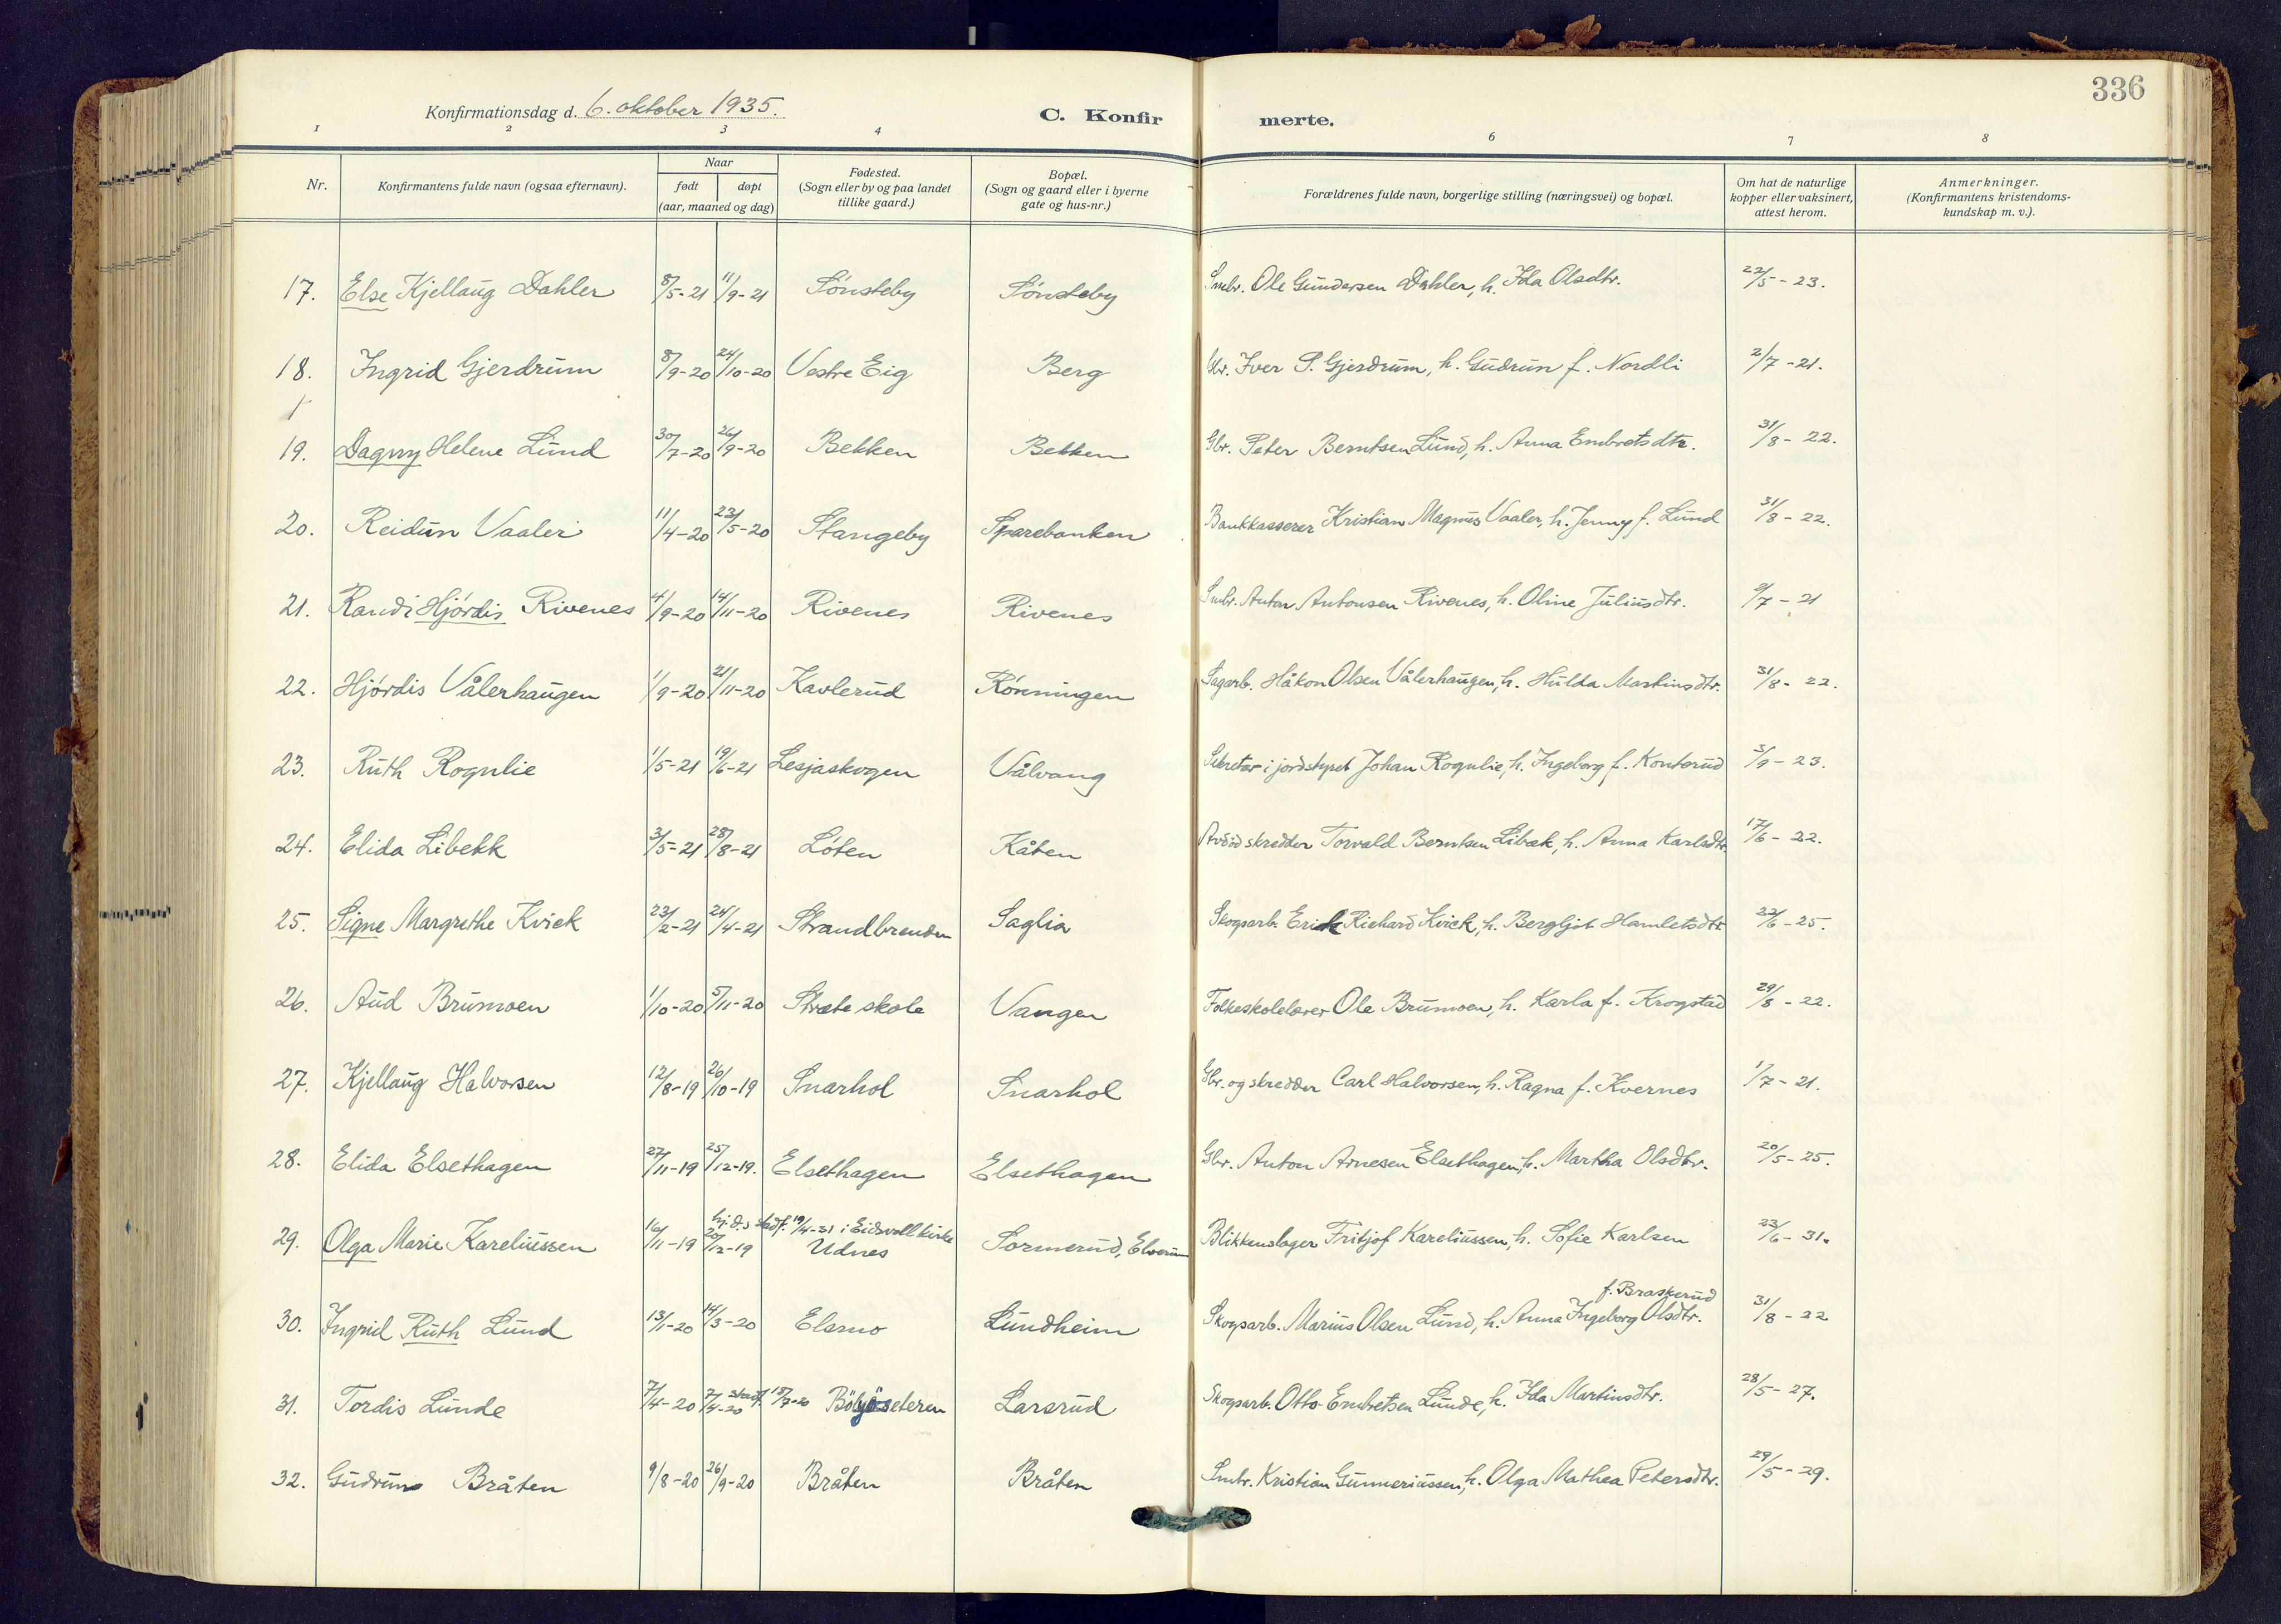 336
Konfirmationsdag d. 6. oktober 1935.
C. Konfirmerte.
1 2 3 4 6 7 8
Nr. Konfirmantens fulde navn (ogsaa efternavn). Naar født døpt (aar, maaned og dag) Fødested. (Sogn eller by og paa landet tillike gaard.) Bopæl. (Sogn og gaard eller i byerne gate og hus-nr.) Forældrenes fulde navn, borgerlige stilling (næringsvei) og bopæl. Om hat de naturlige kopper eller vaksinert, attest herom. Anmerkninger. (Konfirmantens kristendoms-kundskap m. v.).
17. Else Kjellaug Dahler 8/5-21 11/9-21 Sönsteby Sönsteby Smbr. Ole Gundersen Dahler, h. Ida Olsdtr. 22/5-23.
18. Ingrid Gjerdrum 8/9-20 24/10-20 Vestre Eig Berg Gbr. Iver P. Gjerdrum, h. Gudrun f. Nordli 2/7-21.
19. Dagny Helene Lund 30/7-20 26/9-20 Bekken Bekken Gbr. Peter Berntsen Lund, h. Anna Embretsdtr. 31/8-22.
20. Reidun Vaaler 11/4-20 23/5-20 Stangeby Sparebanken Bankkasserer Kristian Magnus Vaaler, h. Jenny f. Lund 31/8-22.
21. Randi Hjördis Rivenes 4/9-20 14/11-20 Rivenes Rivenes Smbr. Anton Antonsen Rivenes, h. Oline Juliusdtr. 2/7-21
22. Hjördis Vålerhaugen 1/9-20 21/11-20 Kavlerud Rönningen Sagarb. Håkon Olsen Vålerhaugen, h. Hulda Martinsdtr. 31/8-22.
23. Ruth Rognlie 1/5-21 19/6-21 Lesjaskogen Vålvang Sekretær i jordstyret Johan Rognlie, h. Ingeborg f. Konterud 3/9-23.
24. Elida Libekk 3/5-21 28/8-21 Löten Kåten Avdöd skredder Torvald Berntsen Libæk, h. Anna Karlsdtr. 17/6-22.
25. Signe Margrethe Kvick 23/2-21 24/4-21 Strandbrenden Saglia Skogsarb. Erick Richard Kvick, h. Bergljot Hamletsdtr. 22/6-25.
26. Aud Brumoen 1/10-20 5/11-20 Stræte skole Vangen Folkeskolelærer Ole Brumoen, h. Karla f. Krogstad 29/8-22.
27. Kjellaug Halvorsen 12/8-19 26/10-19 Snarhol Snarhol Gbr. og skredder Carl Halvorsen, h. Ragna f. Kvernes 1/7-21.
28. Elida Elsethagen 27/11-19 25/12-19. Elsethagen Elsethagen Gbr. Anton Arnesen Elsethagen, h. Martha Olsdtr. 20/5-25.
hj.d. stadf. 19/4-31 i Eidsvoll kirke
29. Olga Marie Kareliussen 16/11-19 20/12-19 Udnes Sormerud, Elverum Blikkenslager Fritjof Kareliussen, h. Sofie Karlsen 23/6-31.
f. Braskerud
30. Ingrid Ruth Lund 13/1-20 14/3-20 Elsmo Lundheim Skogsarb. Marius Olsen Lund, h. Anna Ingeborg Olsdtr. 31/8-22
31. Tordis Lunde 7/4-20 7/4-20 stadf. Larsrud Skogsarb. Otto Embretsen Lunde, h. Ida Martinsdtr. 28/5-27.
32. Gudrun Bråten 9/8-20 26/9-20 Bråten Bråten Smbr. Kristian Gunneriussen, h. Olga Mathea Petersdtr. 29/5-29.